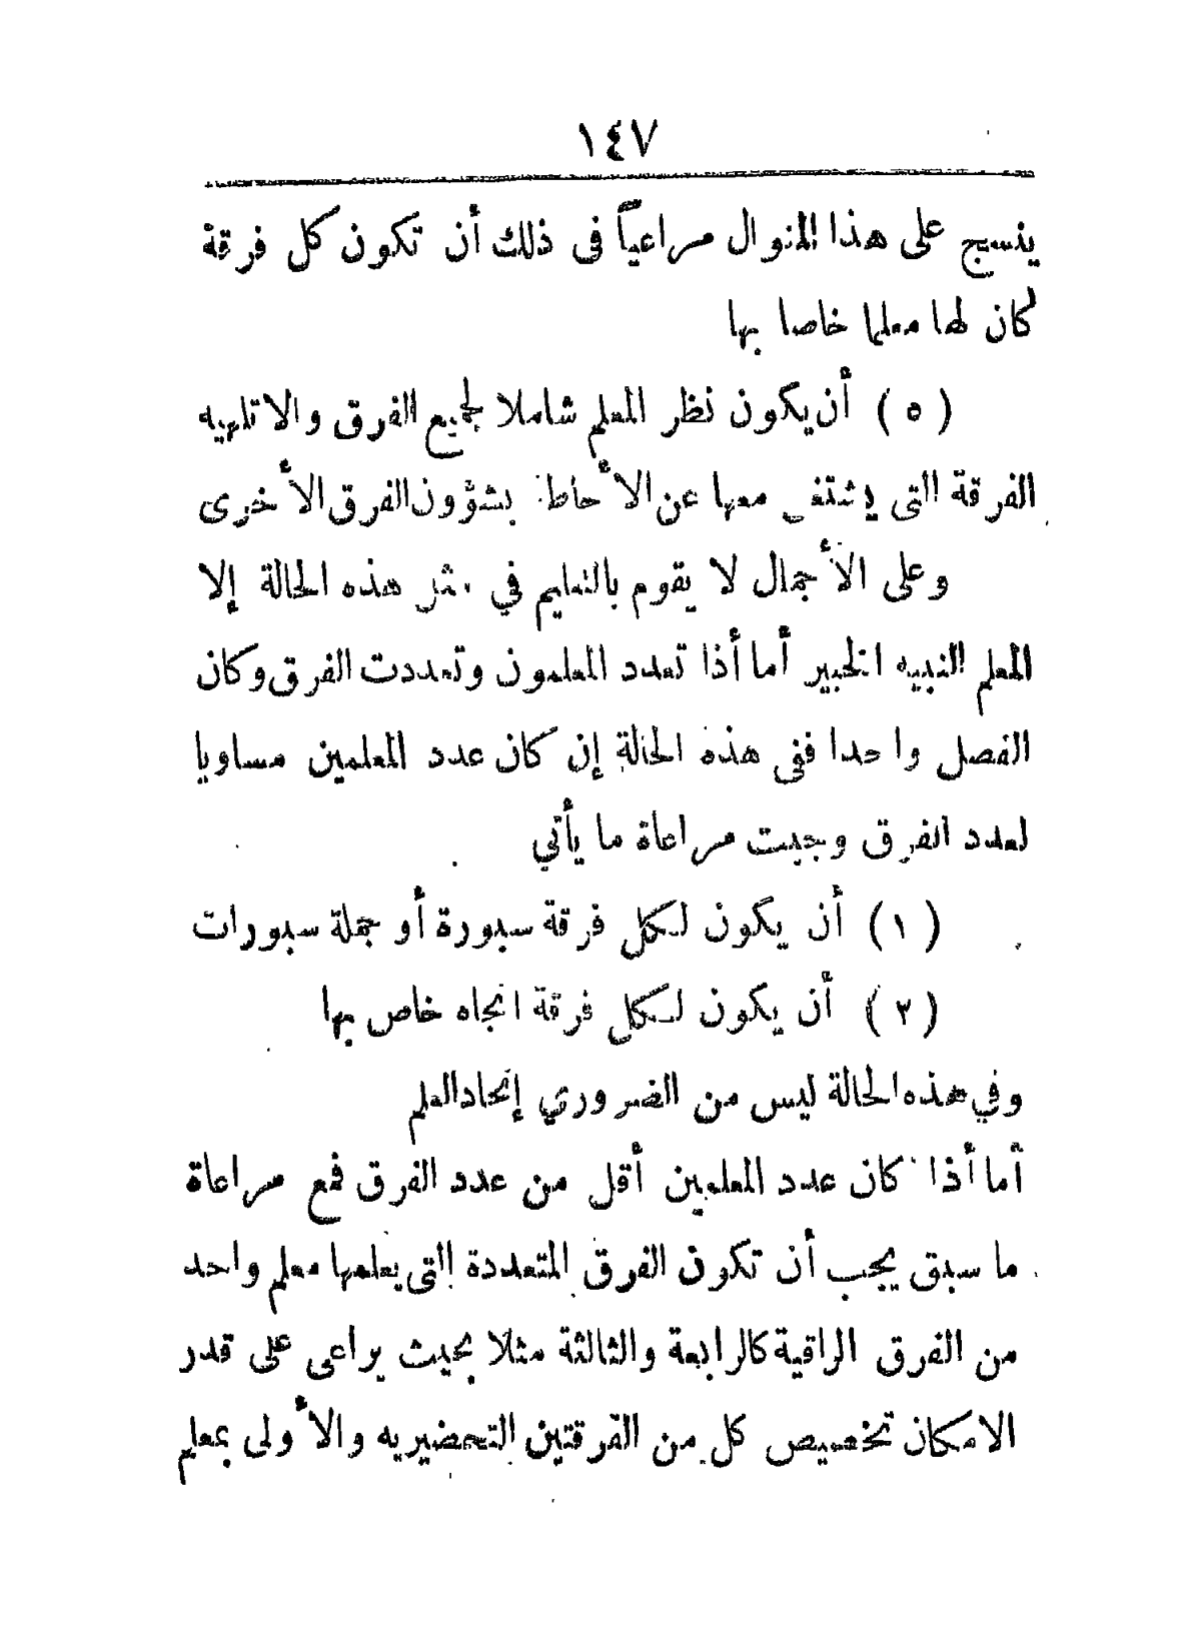 ١٤٧
ينسج على هذا المنوال مراعياً فى ذلك أن تكون كل فرقة
كان لها معلما خاصا بها
( ٥ ) أن يكون نظر المعلم شاملا لجميع الفرق والا تلهيه
الفرقة التى يشتغل معها عن الأحاطة بشؤون الفرق الأخرى
وعلى الأجمال لا يقوم بالتعليم في مثل هذه الحالة إلا
المعلم النبيه الخبير أما أذا تعدد المعلمون وتعددت الفرق وكان
الفصل واحدا ففى هذه الحالة إن كان عدد المعلمين مساويا
لعدد الفرق وجبت مراعاة ما يأتي
( ١ ) أن يكون لكل فرقة سبورة أو جملة سبورات
( ٢ ) أن يكون لكل فرقة اتجاه خاص بها
وفي هذه الحالة ليس من الضروري إتحاد العلم
أما أذا كان عدد المعلمين أقل من عدد الفرق فمع مراعاة
ما سبق يجب أن تكون الفرق المتعددة التى يعلمها معلم واحد
من الفرق الراقية كالرابعة والثالثة مثلا بحيث يراعى على قدر
الامكان تخصيص كل من الفرقتين التحضيريه والأولى بمعلم